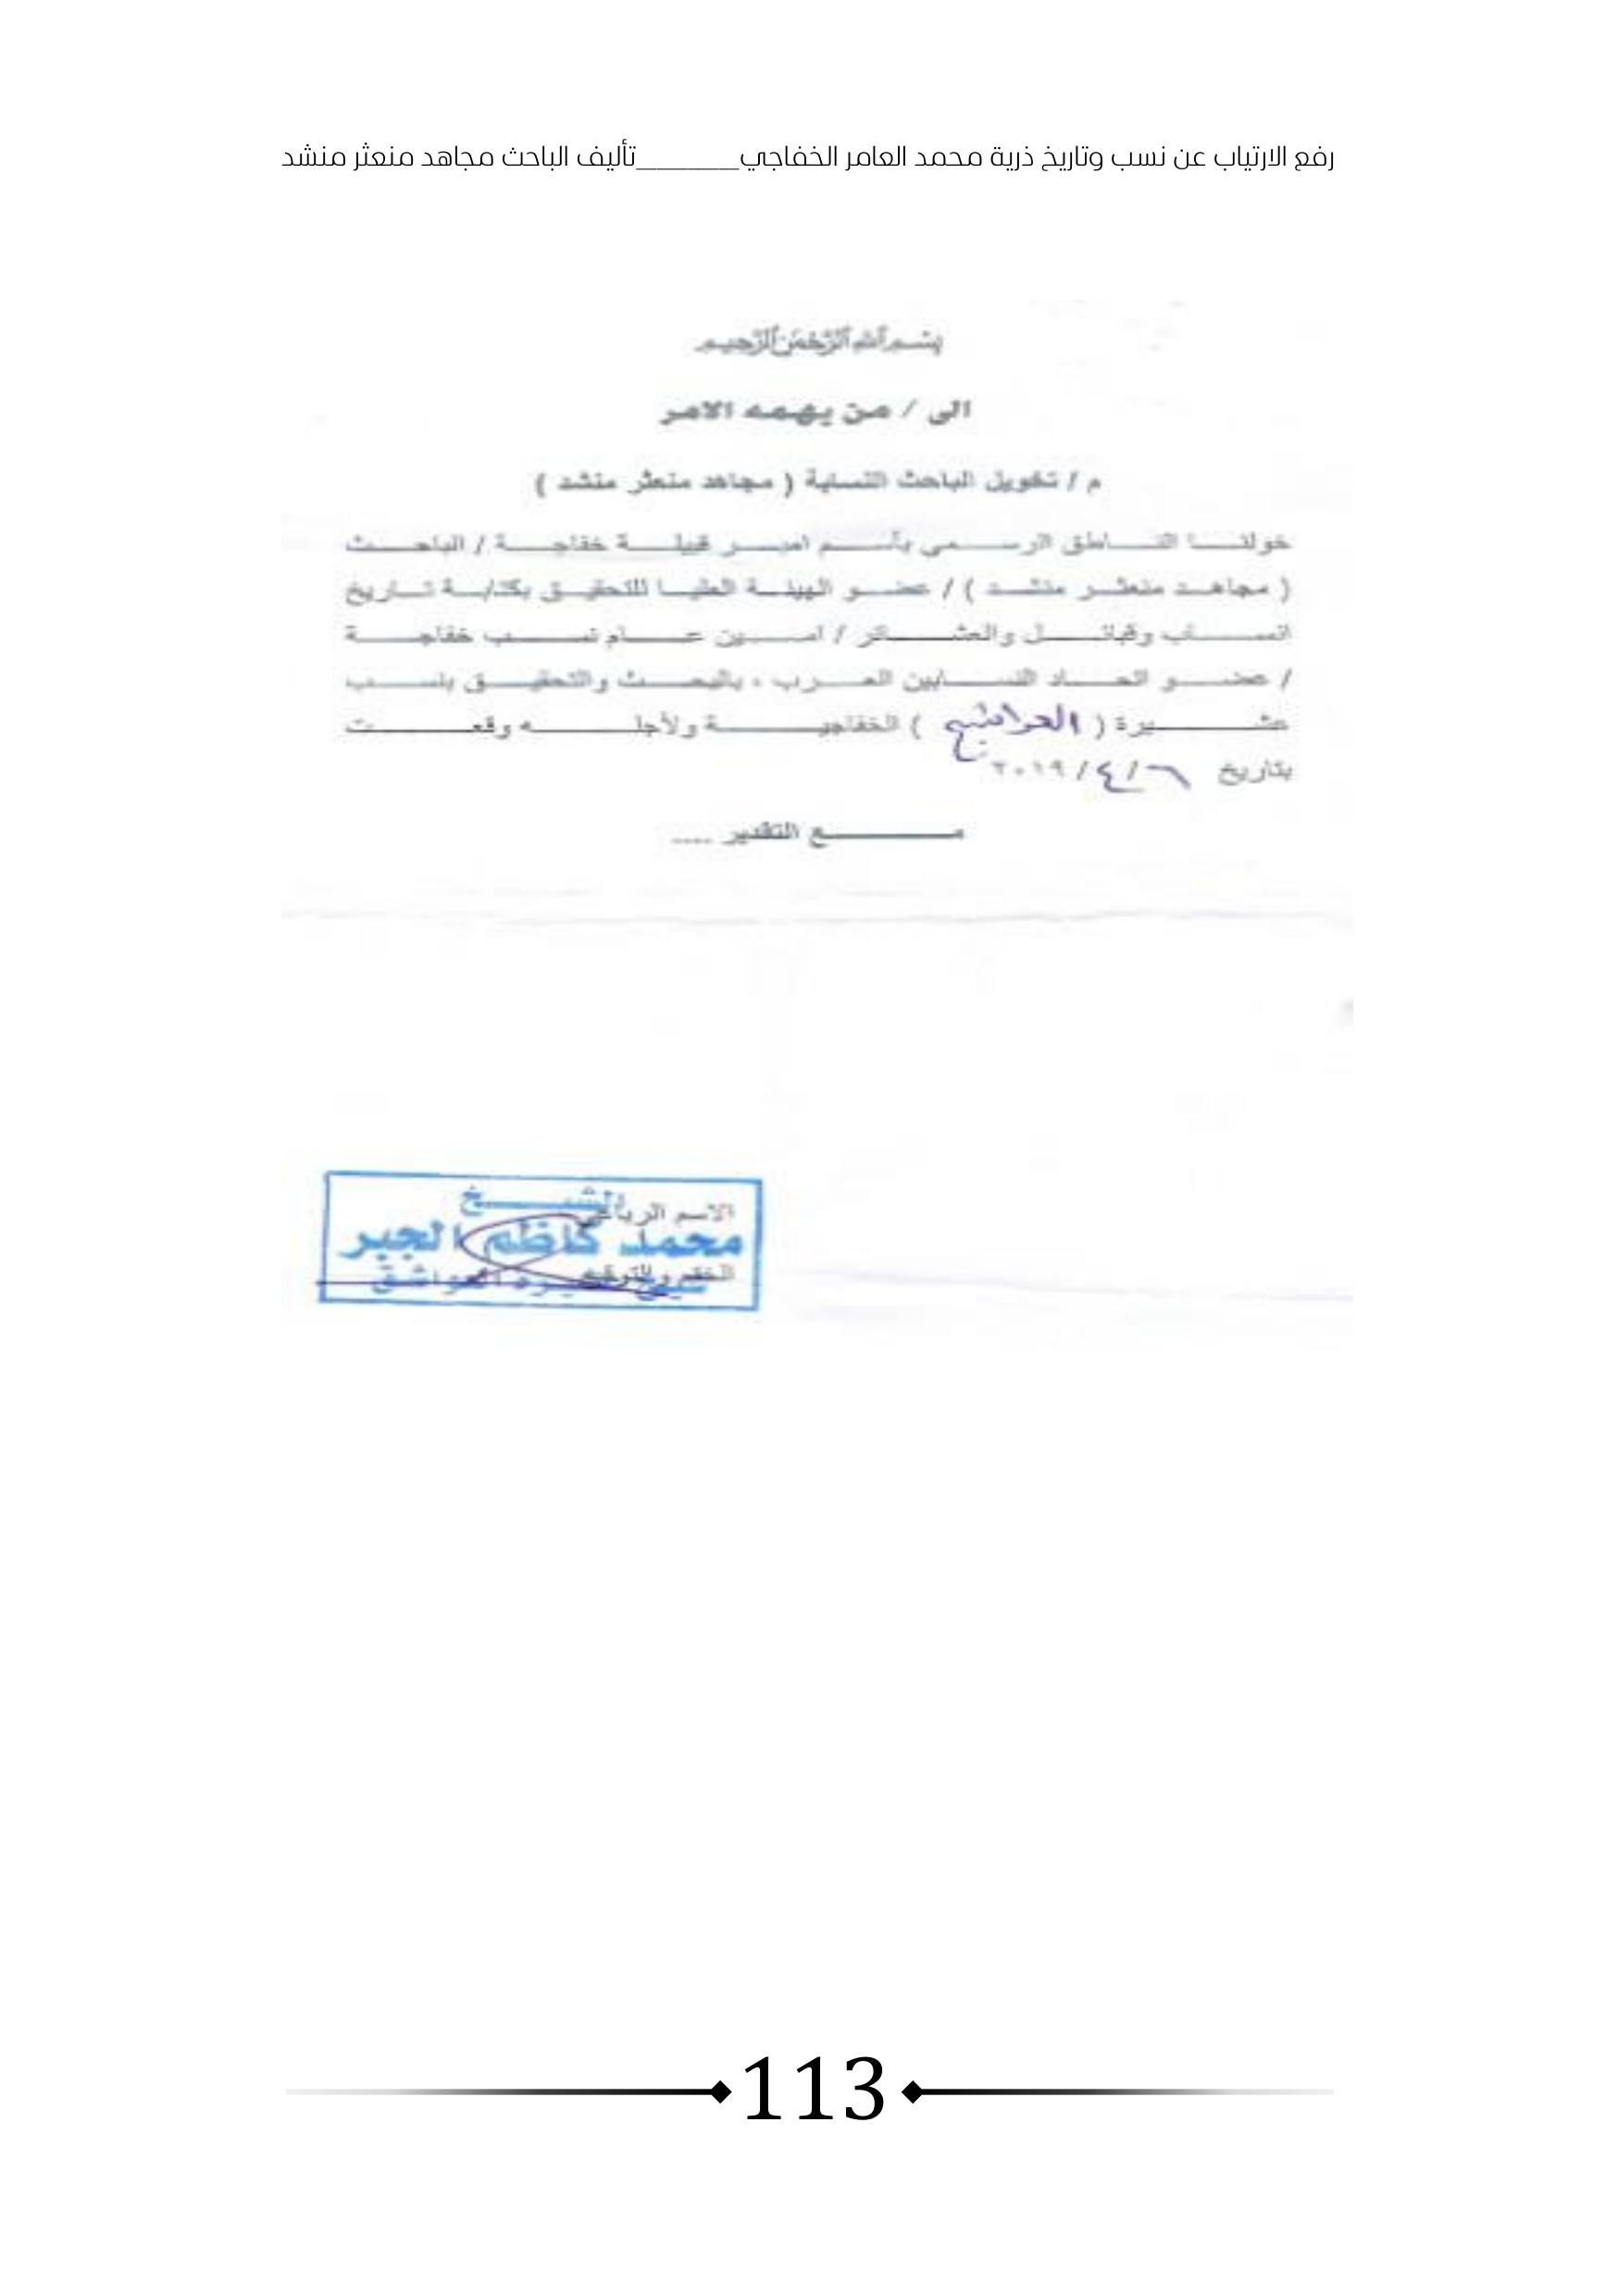 رفع الارتياب عن نسب وتاريخ ذرية محمد العامر الخفاجي________تأليف الباحث مجاهد منعثر منشد
بسم الله الرحمن الرحيم
الى / من يهمه الامر
م / تخويل الباحث النسابة ( مجاهد منعثر منشد )
خولنا الناطق الرسمي بأسم امير قبيلة خفاجة / الباحث
( مجاهد منعثر منشد ) / عضو الهيئة العليا للتحقيق بكتابة تاريخ
انساب وقبائل والعشائر / امين عام نسب خفاجة
/ عضو اتحاد النسابين العرب ، بالبحث والتحقيق بنسب
عشيرة ( ) الخفاجية ولأجله وقعت
بتاريخ ٦ / ٤ / ٢٠١٩
مع التقدير ....
الشيخ
الاسم الرباعي
محمد كاظم الجبر
الختم والتوقيع
113